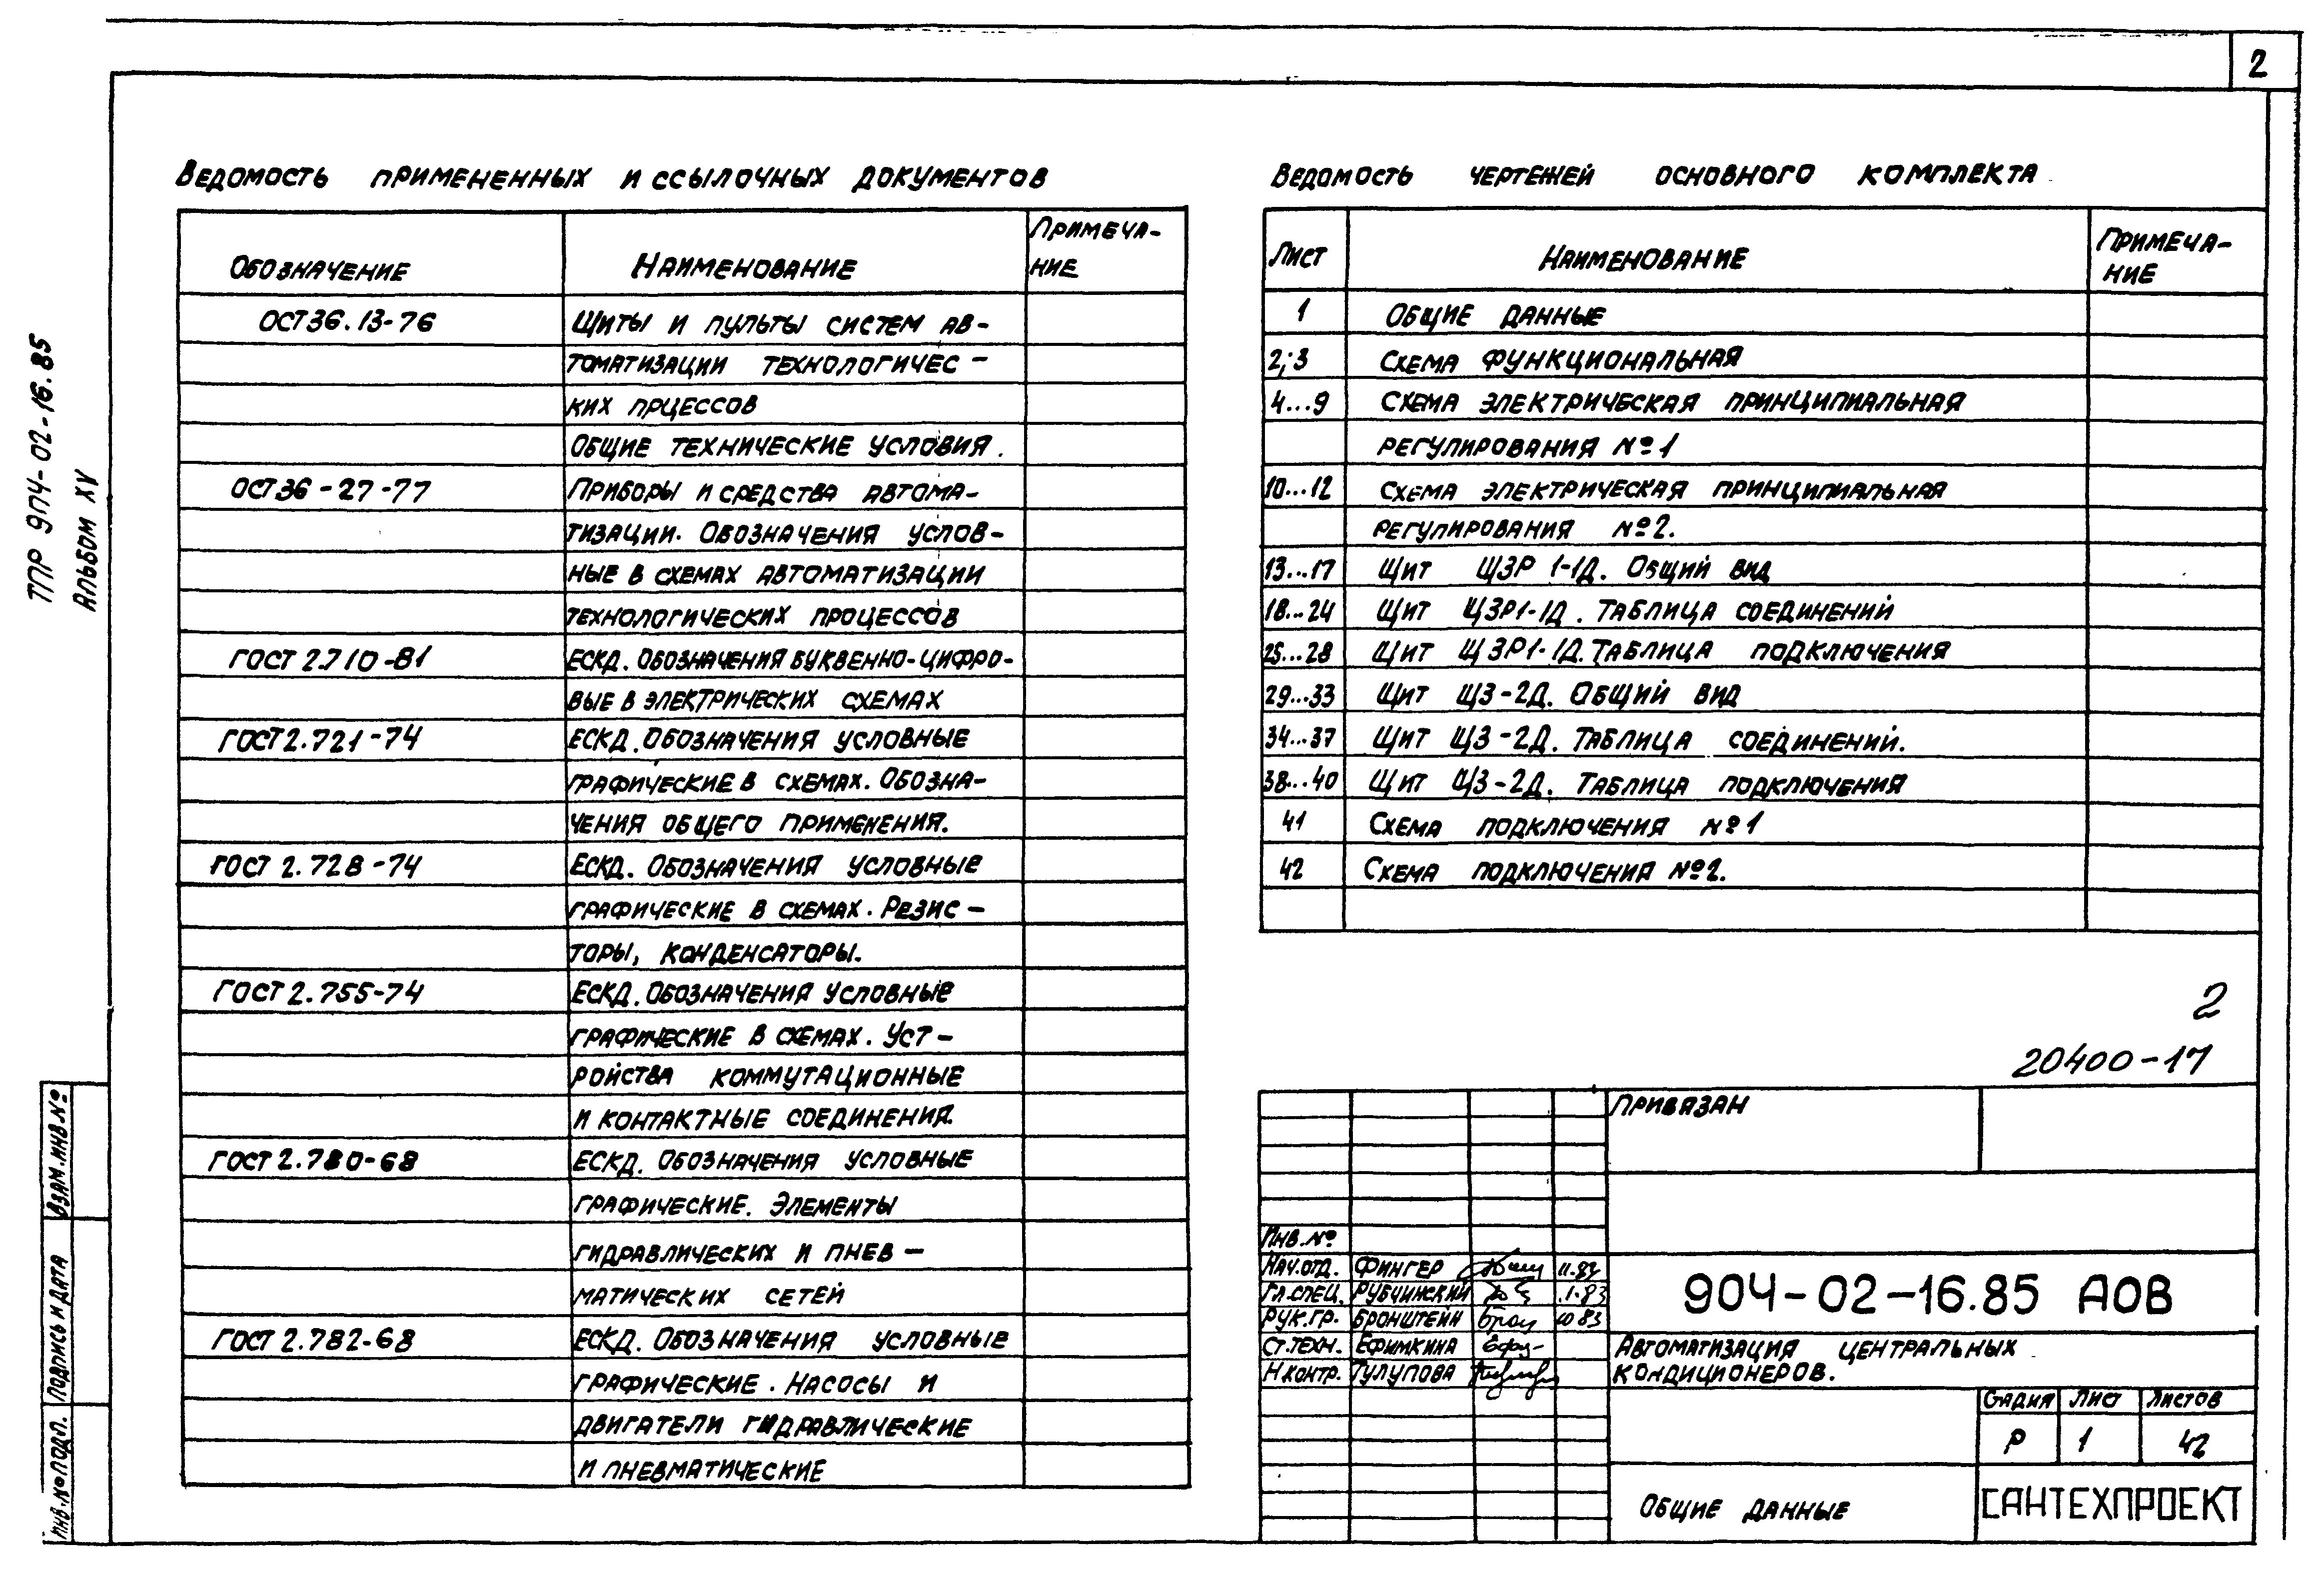 2
ТПР 904-02-16.85
АЛЬБОМ XV
ВЕДОМОСТЬ ПРИМЕНЕННЫХ И ССЫЛОЧНЫХ ДОКУМЕНТОВ
ОБОЗНАЧЕНИЕ НАИМЕНОВАНИЕ ПРИМЕЧА-
НИЕ
ОСТ 36.13-76 ЩИТЫ И ПУЛЬТЫ СИСТЕМ АВ-
ТОМАТИЗАЦИИ ТЕХНОЛОГИЧЕС-
КИХ ПРЦЕССОВ
ОБЩИЕ ТЕХНИЧЕСКИЕ УСЛОВИЯ.
ОСТ 36-27-77 ПРИБОРЫ И СРЕДСТВА АВТОМА-
ТИЗАЦИИ. ОБОЗНАЧЕНИЯ УСЛОВ-
НЫЕ В СХЕМАХ АВТОМАТИЗАЦИИ
ТЕХНОЛОГИЧЕСКИХ ПРОЦЕССОВ
ГОСТ 2.710-81 ЕСКД. ОБОЗНАЧЕНИЯ БУКВЕННО-ЦИФРО-
ВЫЕ В ЭЛЕКТРИЧЕСКИХ СХЕМАХ
ГОСТ 2.721-74 ЕСКД. ОБОЗНАЧЕНИЯ УСЛОВНЫЕ
ГРАФИЧЕСКИЕ В СХЕМАХ. ОБОЗНА-
ЧЕНИЯ ОБЩЕГО ПРИМЕНЕНИЯ.
ГОСТ 2.728-74 ЕСКД. ОБОЗНАЧЕНИЯ УСЛОВНЫЕ
ГРАФИЧЕСКИЕ В СХЕМАХ. РЕЗИС-
ТОРЫ, КОНДЕНСАТОРЫ.
ГОСТ 2.755-74 ЕСКД. ОБОЗНАЧЕНИЯ УСЛОВНЫЕ
ГРАФИЧЕСКИЕ В СХЕМАХ. УСТ-
РОЙСТВА КОММУТАЦИОННЫЕ
И КОНТАКТНЫЕ СОЕДИНЕНИЯ.
ГОСТ 2.780-68 ЕСКД. ОБОЗНАЧЕНИЯ УСЛОВНЫЕ
ГРАФИЧЕСКИЕ. ЭЛЕМЕНТЫ
ГИДРАВЛИЧЕСКИХ И ПНЕВ-
МАТИЧЕСКИХ СЕТЕЙ
ГОСТ 2.782-68 ЕСКД. ОБОЗНАЧЕНИЯ УСЛОВНЫЕ
ГРАФИЧЕСКИЕ. НАСОСЫ И
ДВИГАТЕЛИ ГИДРАВЛИЧЕСКИЕ
И ПНЕВМАТИЧЕСКИЕ
ВЕДОМОСТЬ ЧЕРТЕЖЕЙ ОСНОВНОГО КОМПЛЕКТА
ЛИСТ НАИМЕНОВАНИЕ ПРИМЕЧА-
НИЕ
1 ОБЩИЕ ДАННЫЕ
2; 3 СХЕМА ФУНКЦИОНАЛЬНАЯ
4...9 СХЕМА ЭЛЕКТРИЧЕСКАЯ ПРИНЦИПИАЛЬНАЯ
РЕГУЛИРОВАНИЯ №1
10...12 СХЕМА ЭЛЕКТРИЧЕСКАЯ ПРИНЦИПИАЛЬНАЯ
РЕГУЛИРОВАНИЯ №2.
13...17 ЩИТ ЩЗР 1-1Д. ОБЩИЙ ВИД
18...24 ЩИТ ЩЗР1-1Д. ТАБЛИЦА СОЕДИНЕНИЙ
25...28 ЩИТ ЩЗР1-1Д. ТАБЛИЦА ПОДКЛЮЧЕНИЯ
29...33 ЩИТ ЩЗ-2Д. ОБЩИЙ ВИД
34...37 ЩИТ ЩЗ-2Д. ТАБЛИЦА СОЕДИНЕНИЙ.
38...40 ЩИТ ЩЗ-2Д. ТАБЛИЦА ПОДКЛЮЧЕНИЯ
41 СХЕМА ПОДКЛЮЧЕНИЯ №1
42 СХЕМА ПОДКЛЮЧЕНИЯ №2.
2
20400-17
ПРИВЯЗАН
ИНВ. №
НАЧ. ОТД. ФИНГЕР
ГЛ. СПЕЦ. РУБЧИНСКИЙ
РУК. ГР. БРОНШТЕЙН
СТ. ТЕХН. ЕФИМКИНА
Н. КОНТР. ТУЛУПОВА
904-02-16.85 АОВ
АВТОМАТИЗАЦИЯ ЦЕНТРАЛЬНЫХ
КОНДИЦИОНЕРОВ.
СТАДИЯ ЛИСТ ЛИСТОВ
Р 1 42
ОБЩИЕ ДАННЫЕ
САНТЕХПРОЕКТ
ВЗАМ. ИНВ. №
ПОДПИСЬ И ДАТА
ИНВ. № ПОДЛ.